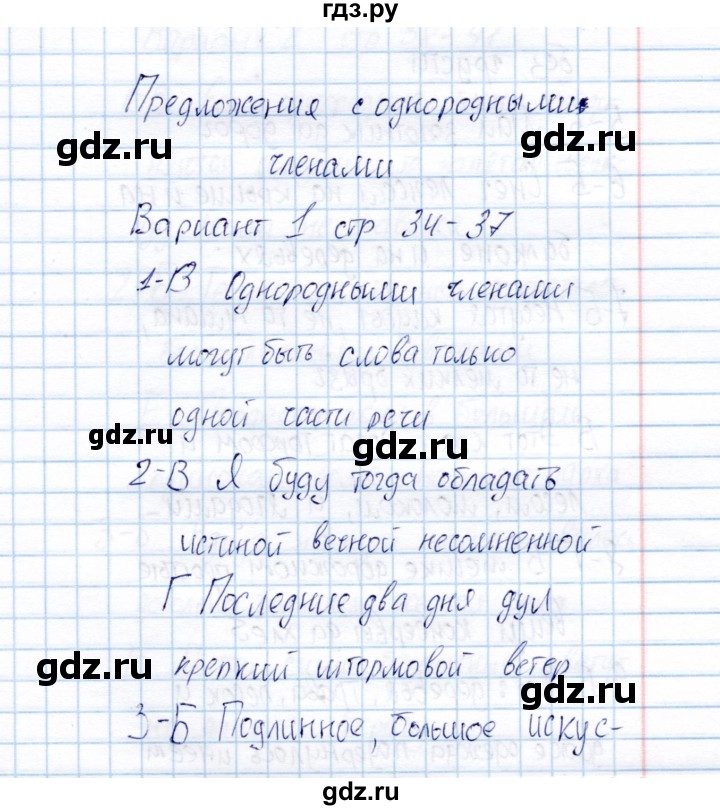 гдз.ру
Предложения с однородными
gdz.ru gdz.ru
членами
Вариант 1 стр 34-37
1-В Однородными членами
могут быть слова только
одной части речи
gdz.ru gdz.ru
2-В Я буду тогда обладать
истиной вечной несомненной
Г Последние два дня дул
крепкий штормовой ветер
gdz.ru gdz.ru
3-Б Подлинное, большое искус-
gdz.ru